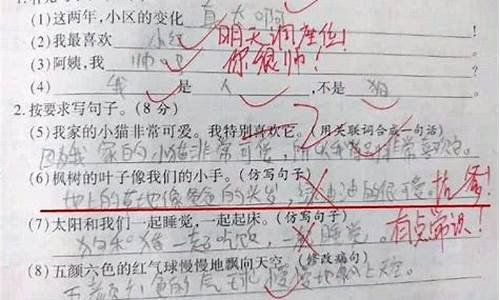 (1)这两年,小区的变化 真大啊
(2)我最喜欢 小红 明天调座位!
(3)阿姨,我 帅吧 你很帅!
(4) 我 是 人 ,不是 狗
2.按要求写句子。(8分)
(5)我家的小猫非常可爱。我特别喜欢它。(用关联词合成一句话)
因为我家的小猫非常可爱,所以我 非常喜欢它。
(6)枫树的叶子像我们的小手。(仿写句子)
地上的草地像爸爸的头发,绿油油的很 。
(7)太阳和我们一起睡觉,一起起床。(仿写句子)
狗和猪一起吃饭,一起睡觉。 有点常识!
(8)五颜六色的红气球慢慢地飘向天空。(修改病句)
五颜六色的气球慢慢地飘上天空。